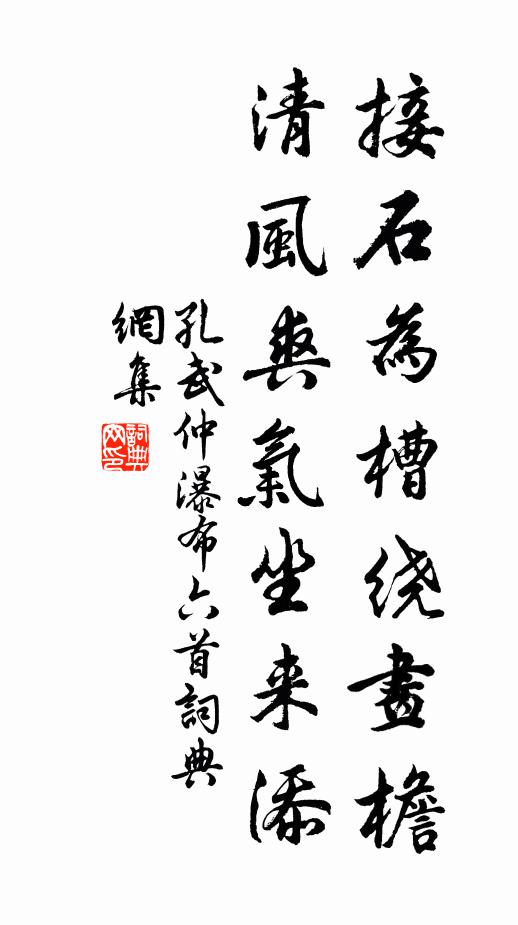 接石為槽绕畫檐
清風爽氣坐来添
孔武仲瀑布六首詞典
網集
詞典网印